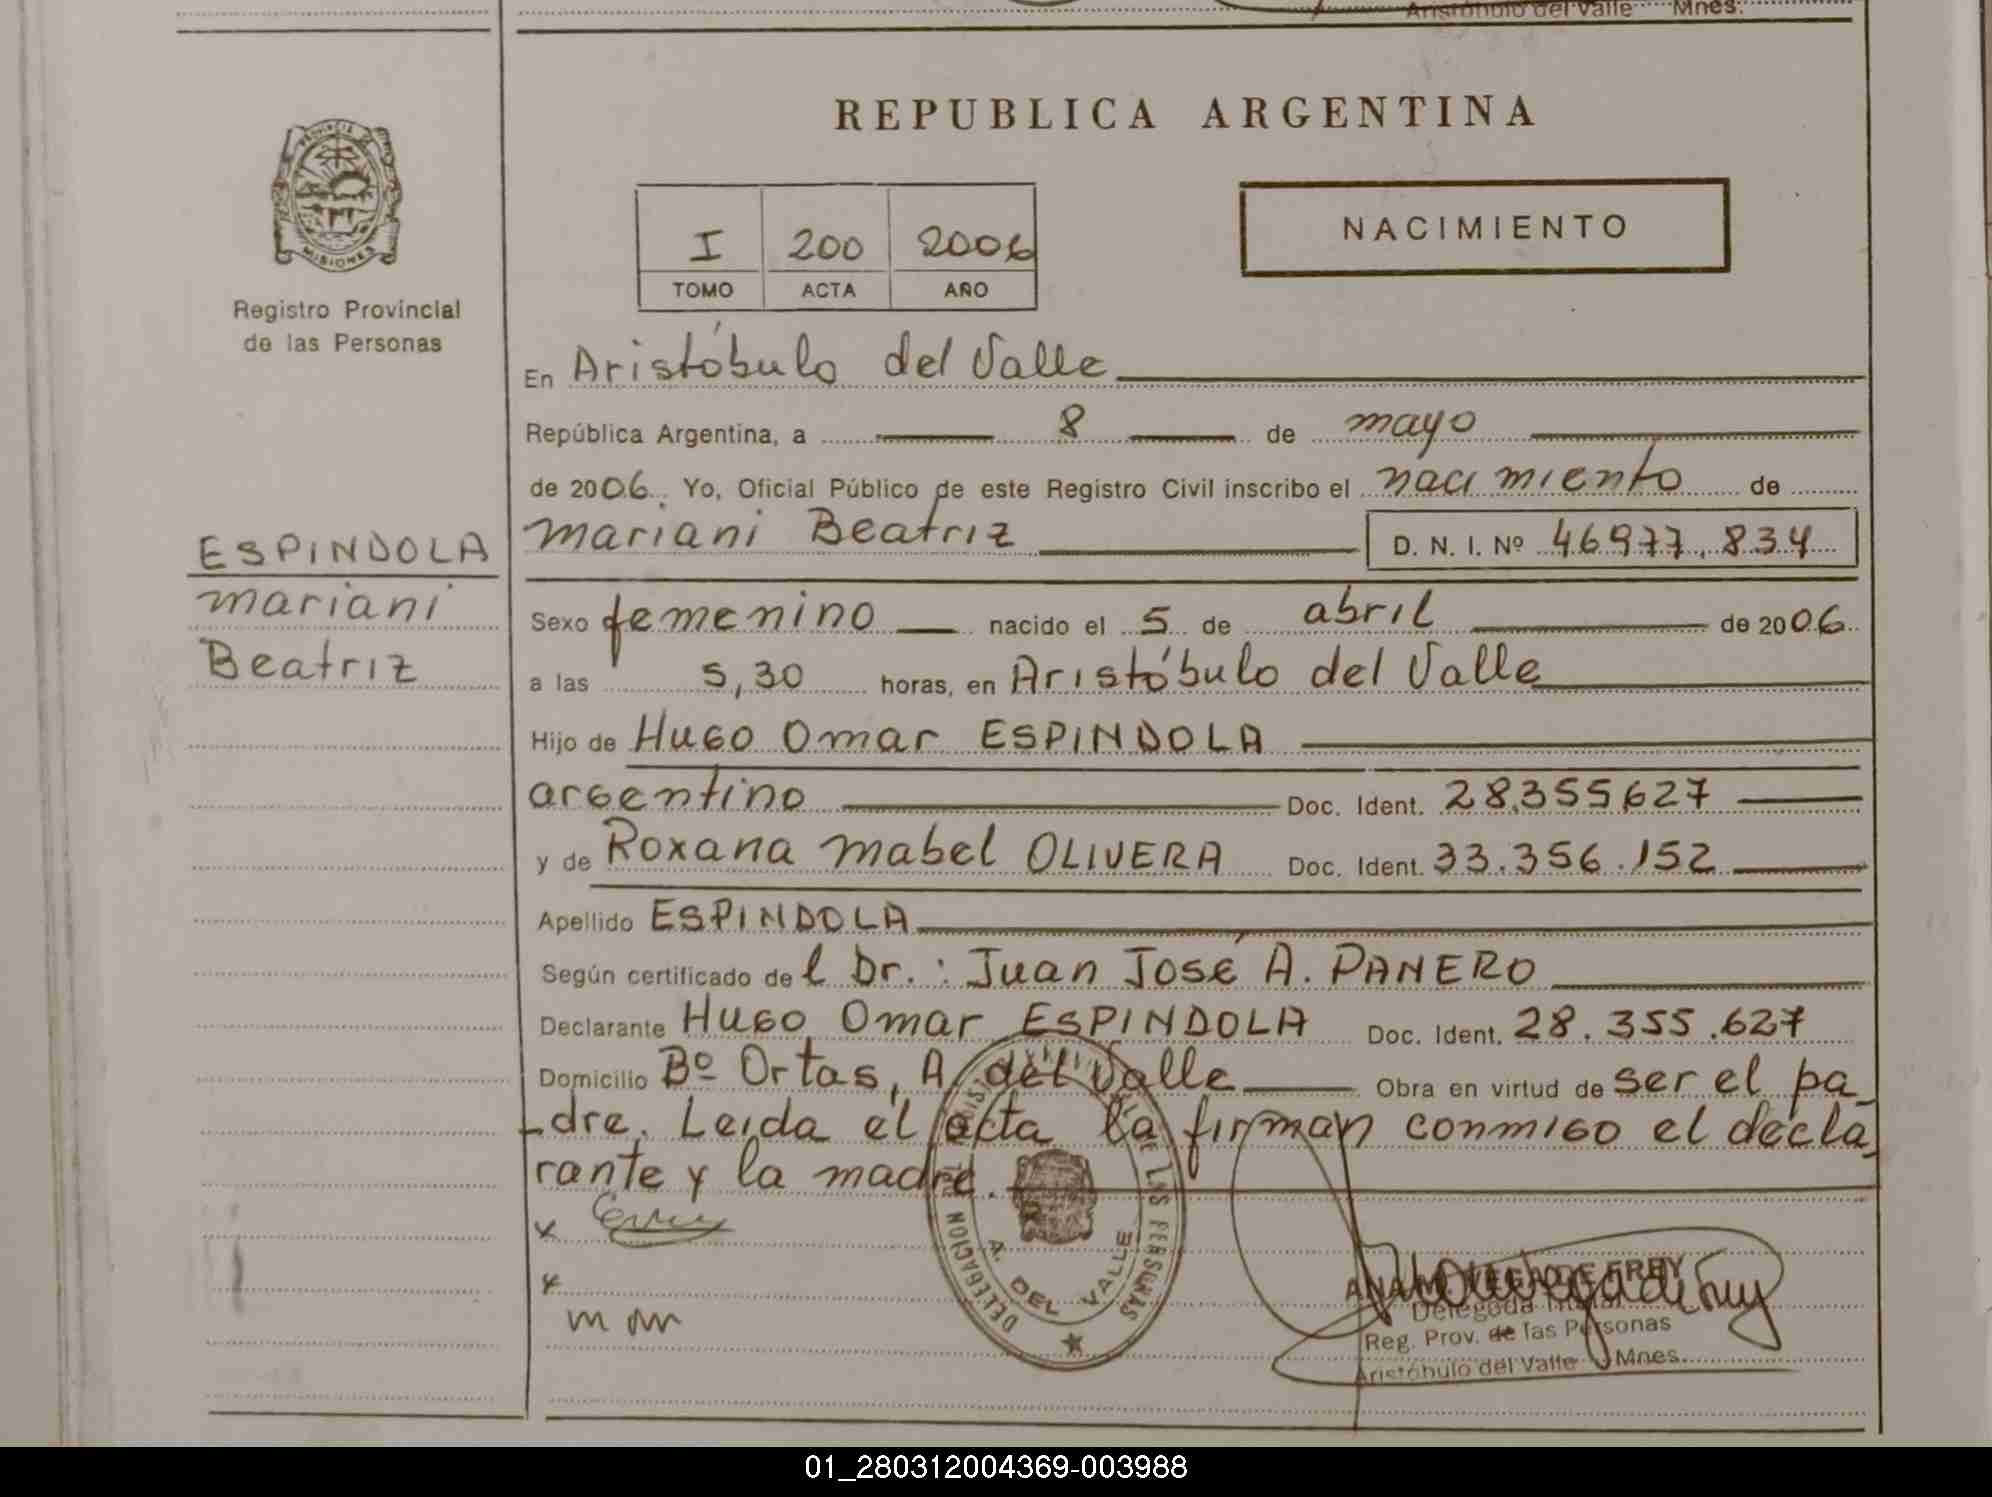 Aristóbulo del Valle Mnes.
REPUBLICA ARGENTINA
PROVINCIA DE
MISIONES
Registro Provincial
de las Personas
I 200 2006
TOMO ACTA AÑO
NACIMIENTO
En Aristóbulo del Valle
República Argentina, a 8 de mayo
de 2006. Yo, Oficial Público de este Registro Civil inscribo el nacimiento de
ESPINDOLA
mariani
Beatriz
mariani Beatriz D. N. I. Nº 46977.834
Sexo femenino nacido el 5 de abril de 2006
a las 5,30 horas, en Aristóbulo del Valle
Hijo de Hugo Omar ESPINDOLA
argentino Doc. Ident. 28.355.627
y de Roxana mabel OLIVERA Doc. Ident. 33.356.152
Apellido ESPINDOLA
Según certificado de l Dr.: Juan José A. PANERO
Declarante Hugo Omar ESPINDOLA Doc. Ident. 28.355.627
Domicilio Bº Ortas, A. del Valle Obra en virtud de ser el pa_
_dre. Leida el acta la firman conmigo el decla_
rante y la madre.
x
x
DELEGACION DE LAS PERSONAS
A. DEL VALLE
DE FREY
Delegada Titular
Reg. Prov. de las Personas
Aristóbulo del Valle Mnes.
01_280312004369-003988